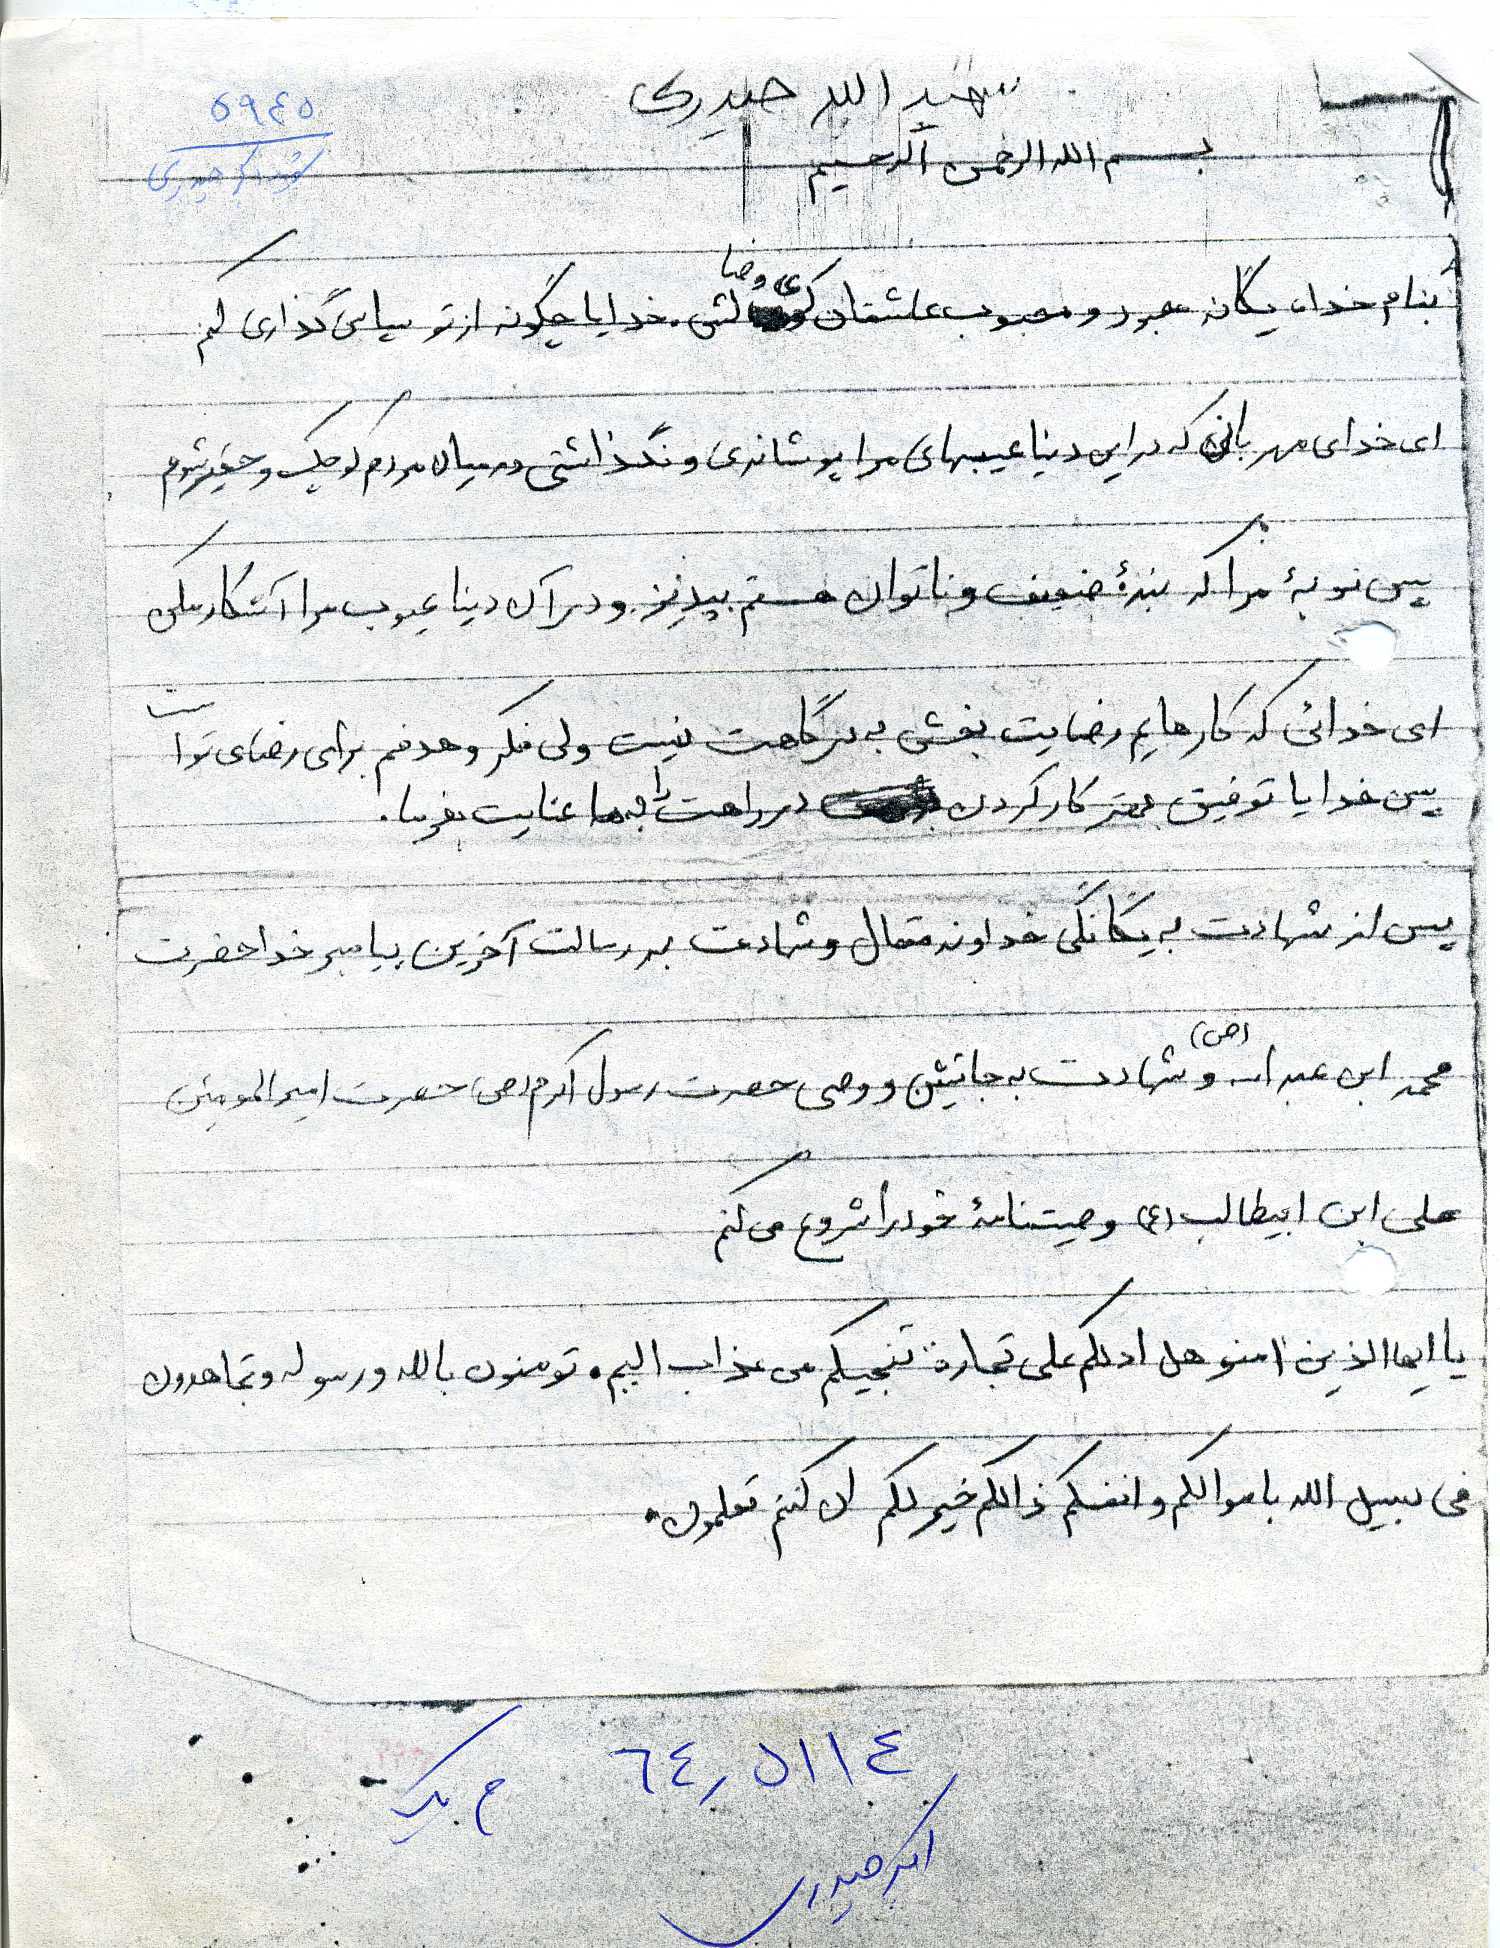 شهید اکبر حیدری
۵۹۴۵
اکبر حیدری
بسم الله الرحمن الرحیم
بنام خداه یگانه معبود و محبوب عاشقان کوی وصالش. خدایا چگونه از تو سپاس گذاری کنم
ای خدای مهربانی که در این دنیا عیبهای مرا پوشاندی و نگذاشتی در میان مردم کوچک و حقیر شوم
پس توبهٔ مرا که بندهٔ ضعیف و ناتوان هستم بپذیز و در آن دنیا عیوب مرا آشکار مکن
ای خدائی که کارهایم رضایت بخش به درگاهت نیست ولی فکر و هدفم برای رضای تو است
پس خدایا توفیق بهتر کار کردن در راهت را به ما عنایت بفرما.
پس از شهادت به یگانگی خداوند متعال و شهادت به رسالت آخرین پیامبر خدا حضرت
محمد ابن عبدالله (ص) و شهادت به جانشین و وصی حضرت رسول اکرم (ص) حضرت امیرالمومنین
علی ابن ابیطالب (ع) وصیتنامهٔ خود را شروع می کنم
یا ایها الذین امنو هل ادلکم علی تجارة تنجیکم من عذاب الیم. تومنون بالله و رسوله و تجاهدون
فی سبیل الله باموالکم و انفسکم ذالکم خیر لکم ان کنتم تعلمون.
۶۴٫۵۱۱۴
م
اکبر حیدری